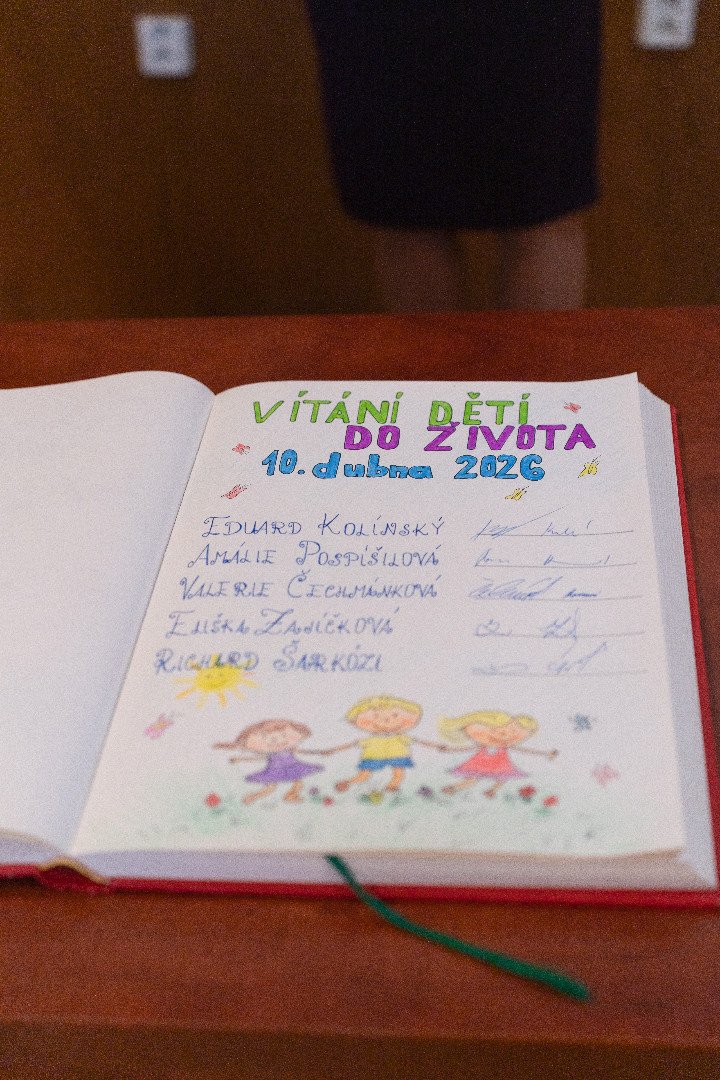 VÍTÁNÍ DĚTÍ
DO ŽIVOTA
10. dubna 2026
EDUARD KOLÍNSKÝ
AMALIE POSPÍŠILOVÁ
VALERIE ČECHMÁNKOVÁ
ELIŠKA ZAJÍČKOVÁ
RICHARD ŠARKÖZI